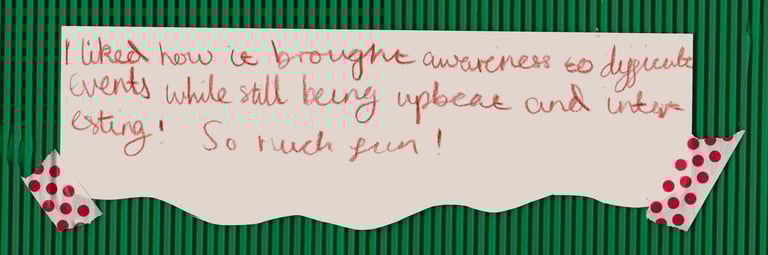 I liked how it brought awareness to difficult
events while still being upbeat and inter
esting! So much fun!